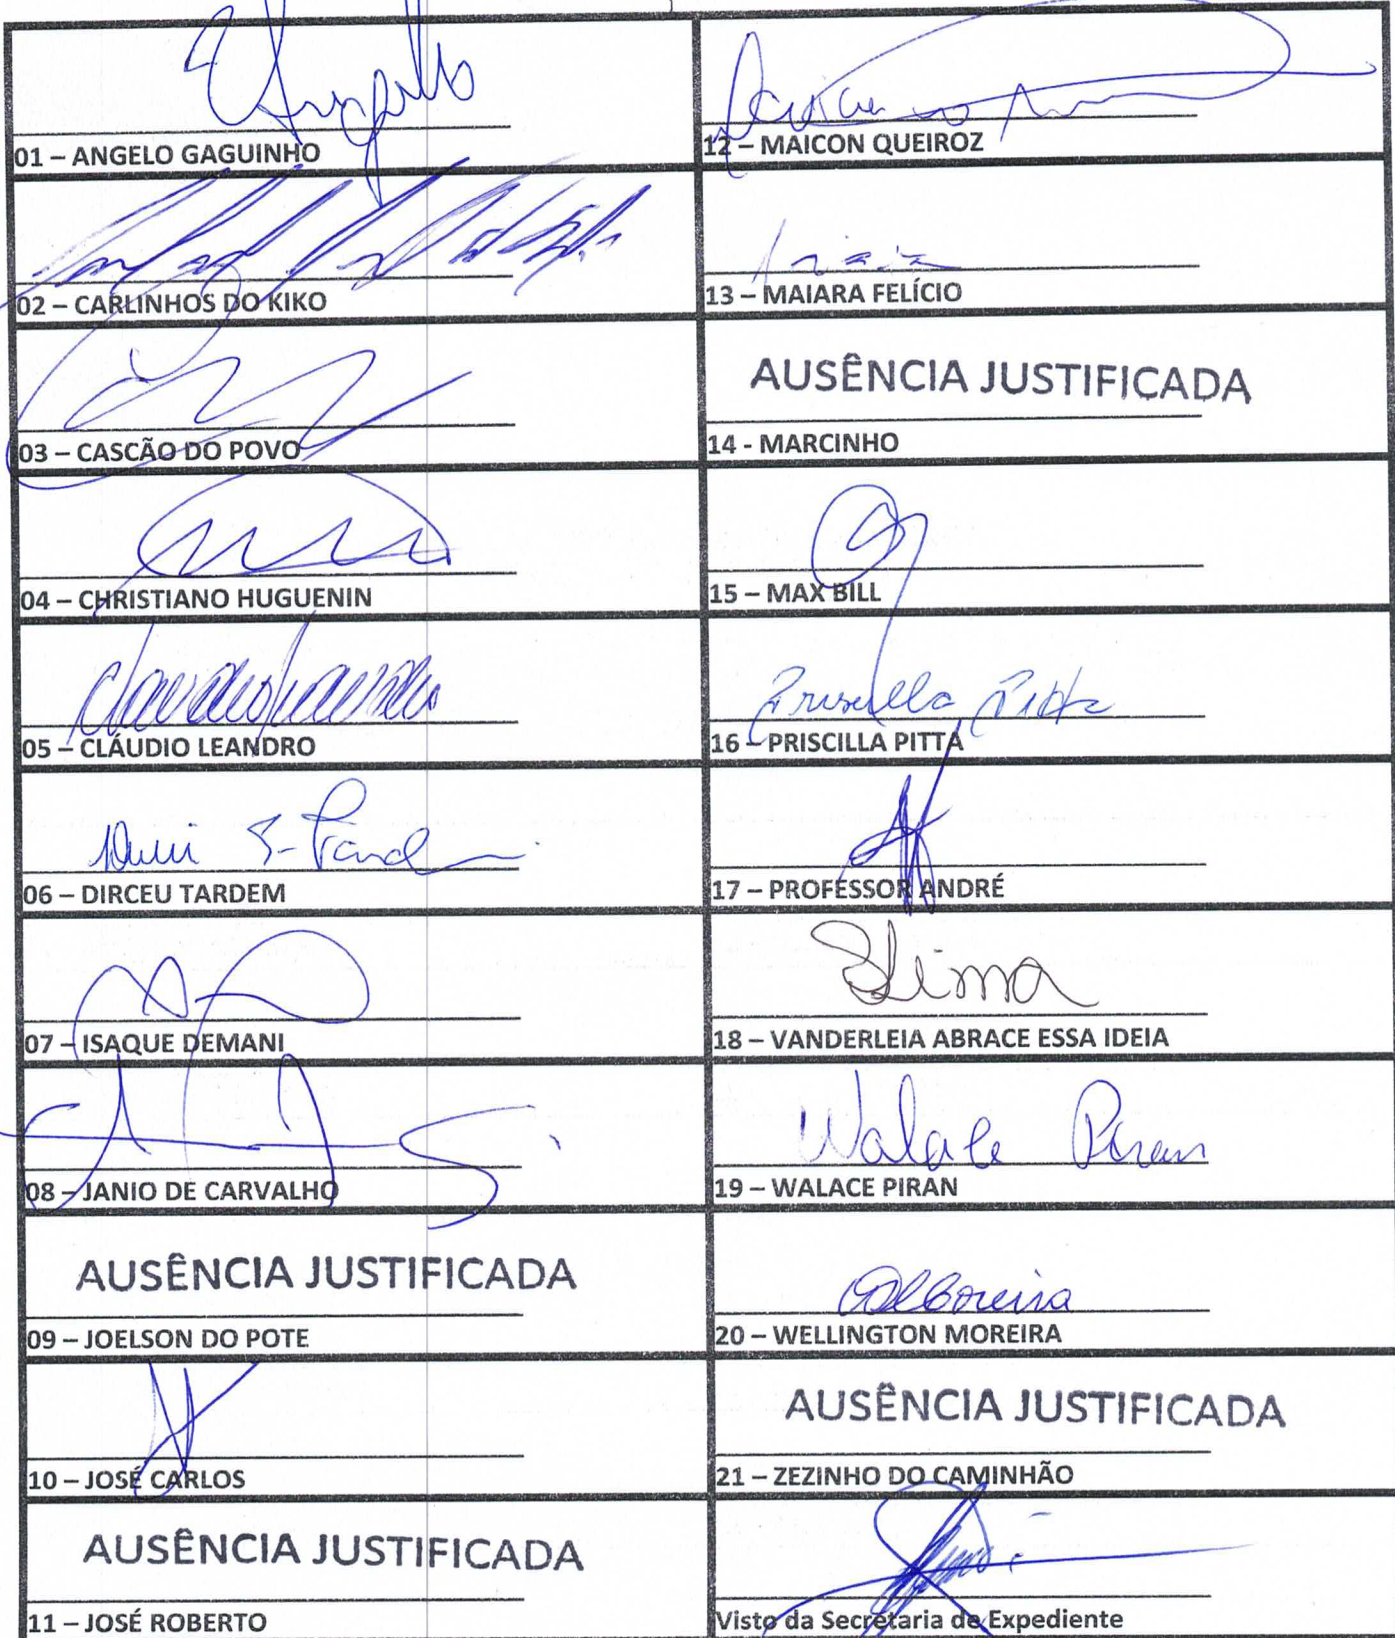 Angello
01 – ANGELO GAGUINHO
02 – CARLINHOS DO KIKO
03 – CASCÃO DO POVO
04 – CHRISTIANO HUGUENIN
05 – CLÁUDIO LEANDRO
06 – DIRCEU TARDEM
07 – ISAQUE DEMANI
08 – JANIO DE CARVALHO
AUSÊNCIA JUSTIFICADA
09 – JOELSON DO POTE
10 – JOSÉ CARLOS
AUSÊNCIA JUSTIFICADA
11 – JOSÉ ROBERTO
12 – MAICON QUEIROZ
13 – MAIARA FELÍCIO
AUSÊNCIA JUSTIFICADA
14 - MARCINHO
15 – MAX BILL
Priscilla Pitta
16 – PRISCILLA PITTA
17 – PROFESSOR ANDRÉ
Lima
18 – VANDERLEIA ABRACE ESSA IDEIA
Walace Piran
19 – WALACE PIRAN
20 – WELLINGTON MOREIRA
AUSÊNCIA JUSTIFICADA
21 – ZEZINHO DO CAMINHÃO
Visto da Secretaria de Expediente